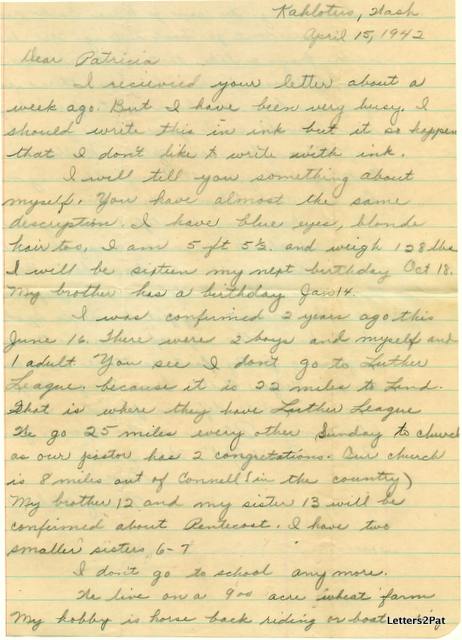 Kahlotus, Wash
April 15, 1942
Dear Patricia
I recievied your letter about a
week ago. But I have been very busy. I
should write this in ink but it so happen
that I don't like to write with ink.
I will tell you something about
myself. You have almost the same
descreption. I have blue eyes, blonde
hair too, I am 5 ft 5½. and weigh 128 lbs
I will be sixteen my next birthday Oct 18.
My brother has a birthday Jan 14.
I was confirmed 2 years ago this
June 16. There were 2 boys and myself and
1 adult. You see I don't go to Luther
League. because it is 22 miles to Lind.
That is where they have Luther League
We go 25 miles every other Sunday to church
as our pastor has 2 congretations. Our church
is 8 miles out of Connell (in the country)
My brother 12 and my sister 13 will be
confirmed about Pentecost. I have two
smaller sisters 6-7
I don't go to school any more.
We live on a 900 acre wheat farm
My hobby is horse back riding or boat
Letters2Pat